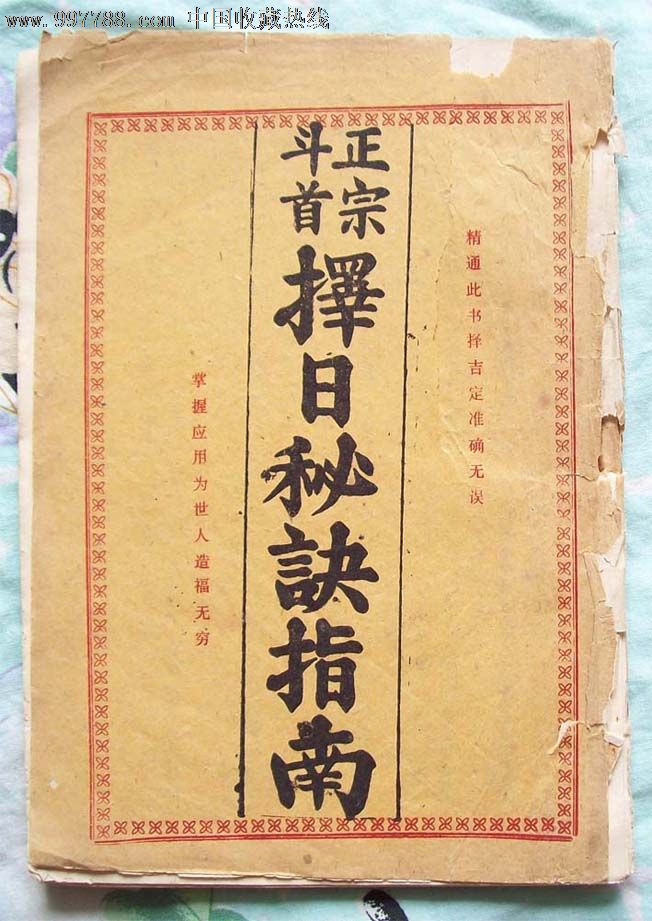 www.997788.com 中国收藏热线
正宗
斗首
擇日秘訣指南
精通此书择吉定准确无误
掌握应用为世人造福无穷